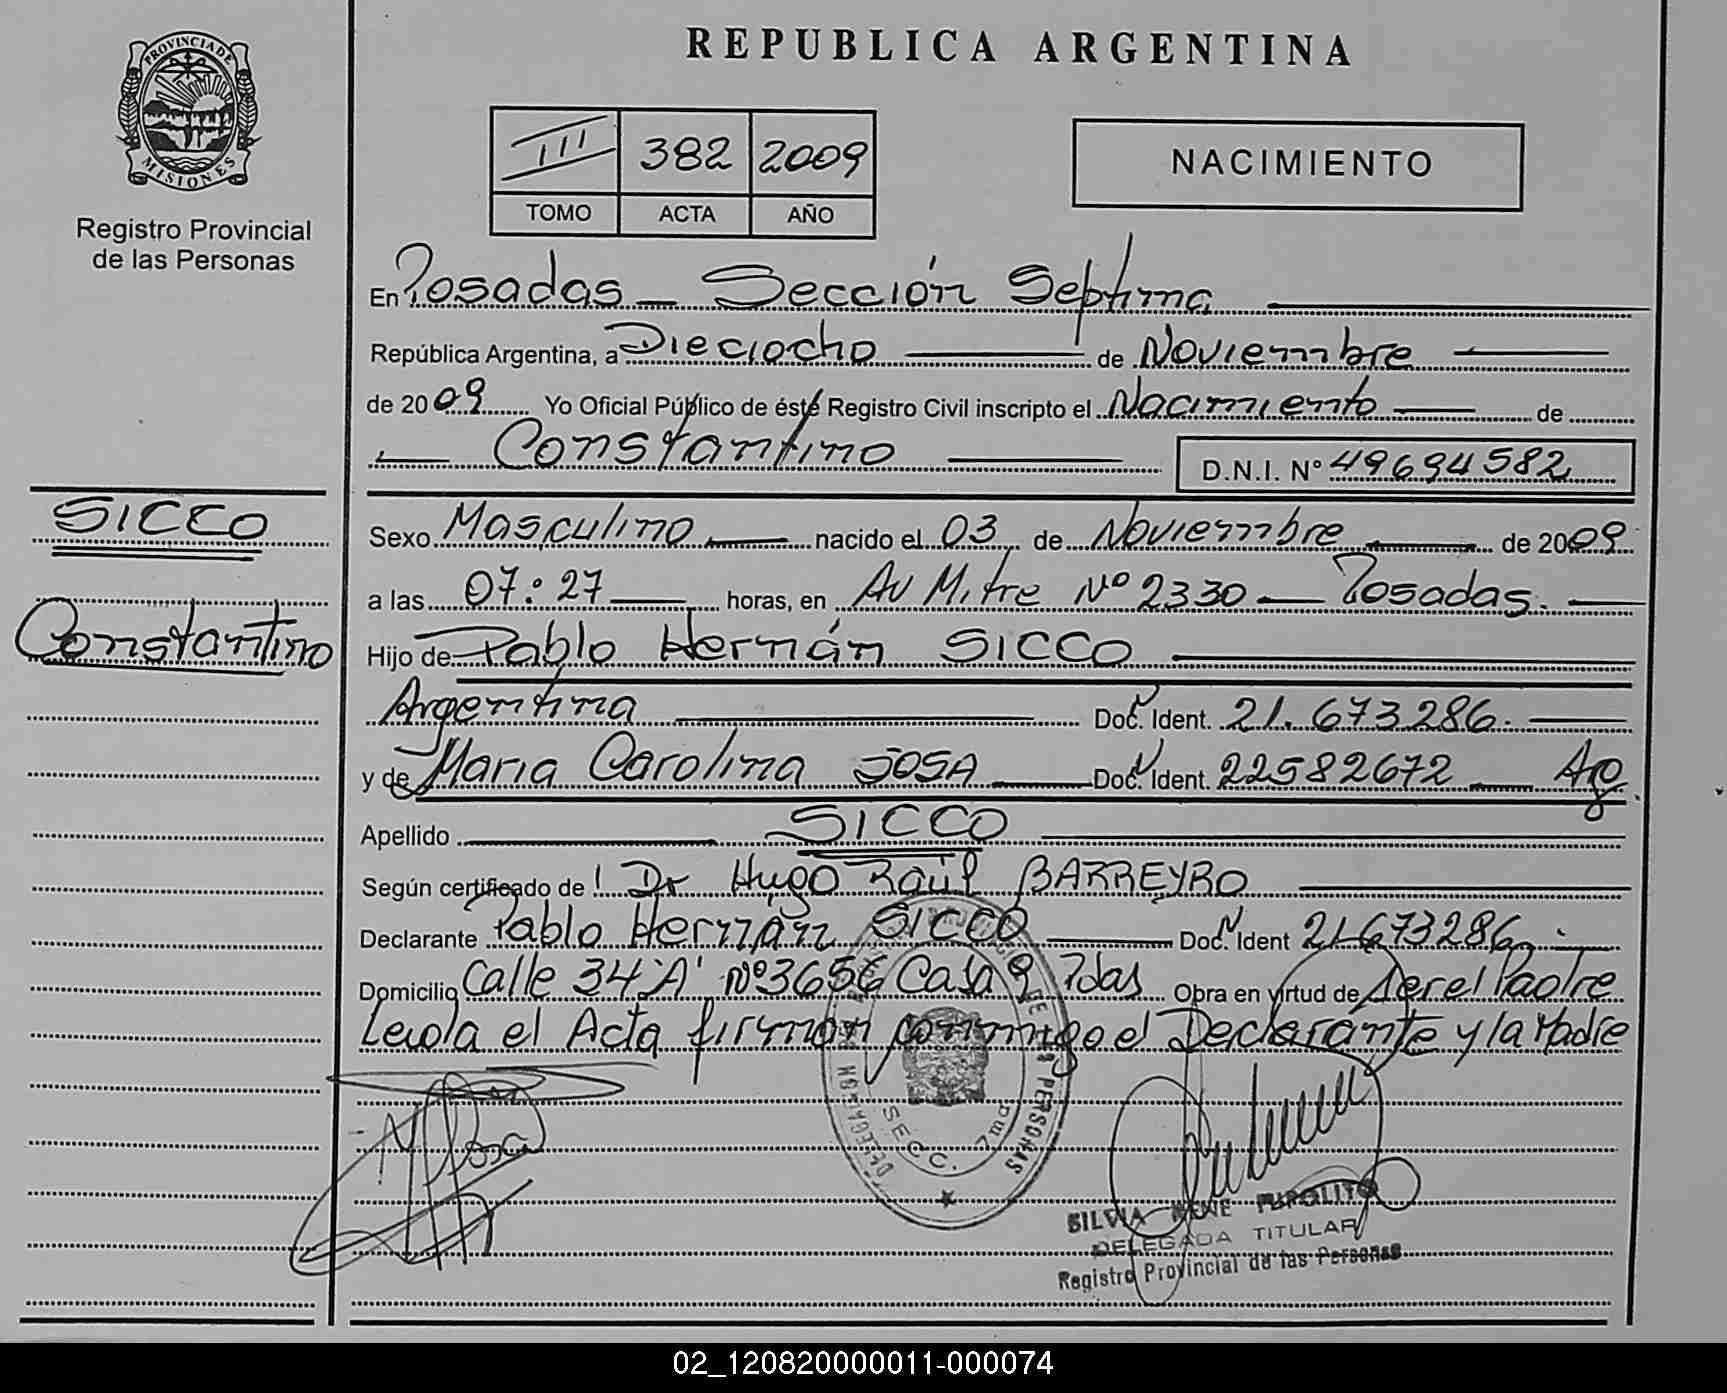 REPUBLICA ARGENTINA
PROVINCIA DE
MISIONES
Registro Provincial
de las Personas
III 382 2009
TOMO ACTA AÑO
NACIMIENTO
En Posadas Sección Septima
República Argentina, a Dieciocho de Noviembre
de 2009 Yo Oficial Público de éste Registro Civil inscripto el Nacimiento de
Constantino D.N.I. Nº 49694582
SICCO
Constantino
Sexo Masculino nacido el 03 de Noviembre de 2009
a las 07:27 horas, en Av Mitre Nº 2330 Posadas.
Hijo de Pablo Hernán SICCO
Argentina Doc. Ident. 21.673286.
y de Maria Carolina SOSA Doc. Ident. 22582672 Arg
Apellido SICCO
Según certificado de Dr Hugo Raúl BARREYRO
Declarante Pablo Hernán SICCO Doc. Ident 21673286
Domicilio Calle 34 'A' Nº 3656 Casa 9 Pdas Obra en virtud de ser el Padre
Leida el Acta firman conmigo el Declarante y la Madre
DELEGACION
DE LAS PERSONAS
SECC. 7ma
SILVIA
DELEGADA TITULAR
Registro Provincial de las Personas
02_120820000011-000074